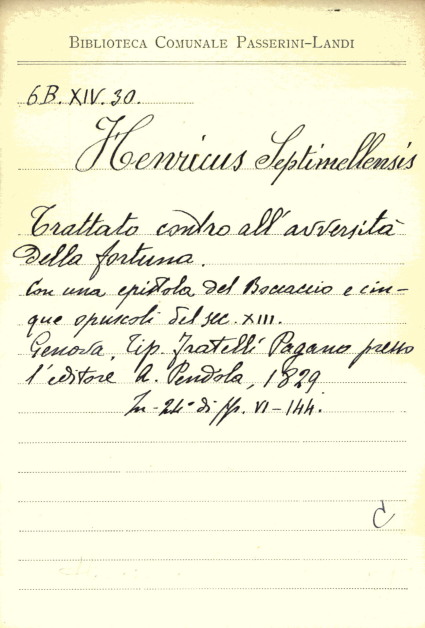 BIBLIOTECA COMUNALE PASSERINI-LANDI
6B.XIV.30.
Henricus Septimellensis
Trattato contro all'avversità
della fortuna.
Con una epistola del Boccaccio e cin-
que opuscoli del sec. XIII.
Genova, Tip. Fratelli Pagano presso
l'editore A. Pendola, 1829
In-24° di pp. VI-144.
C